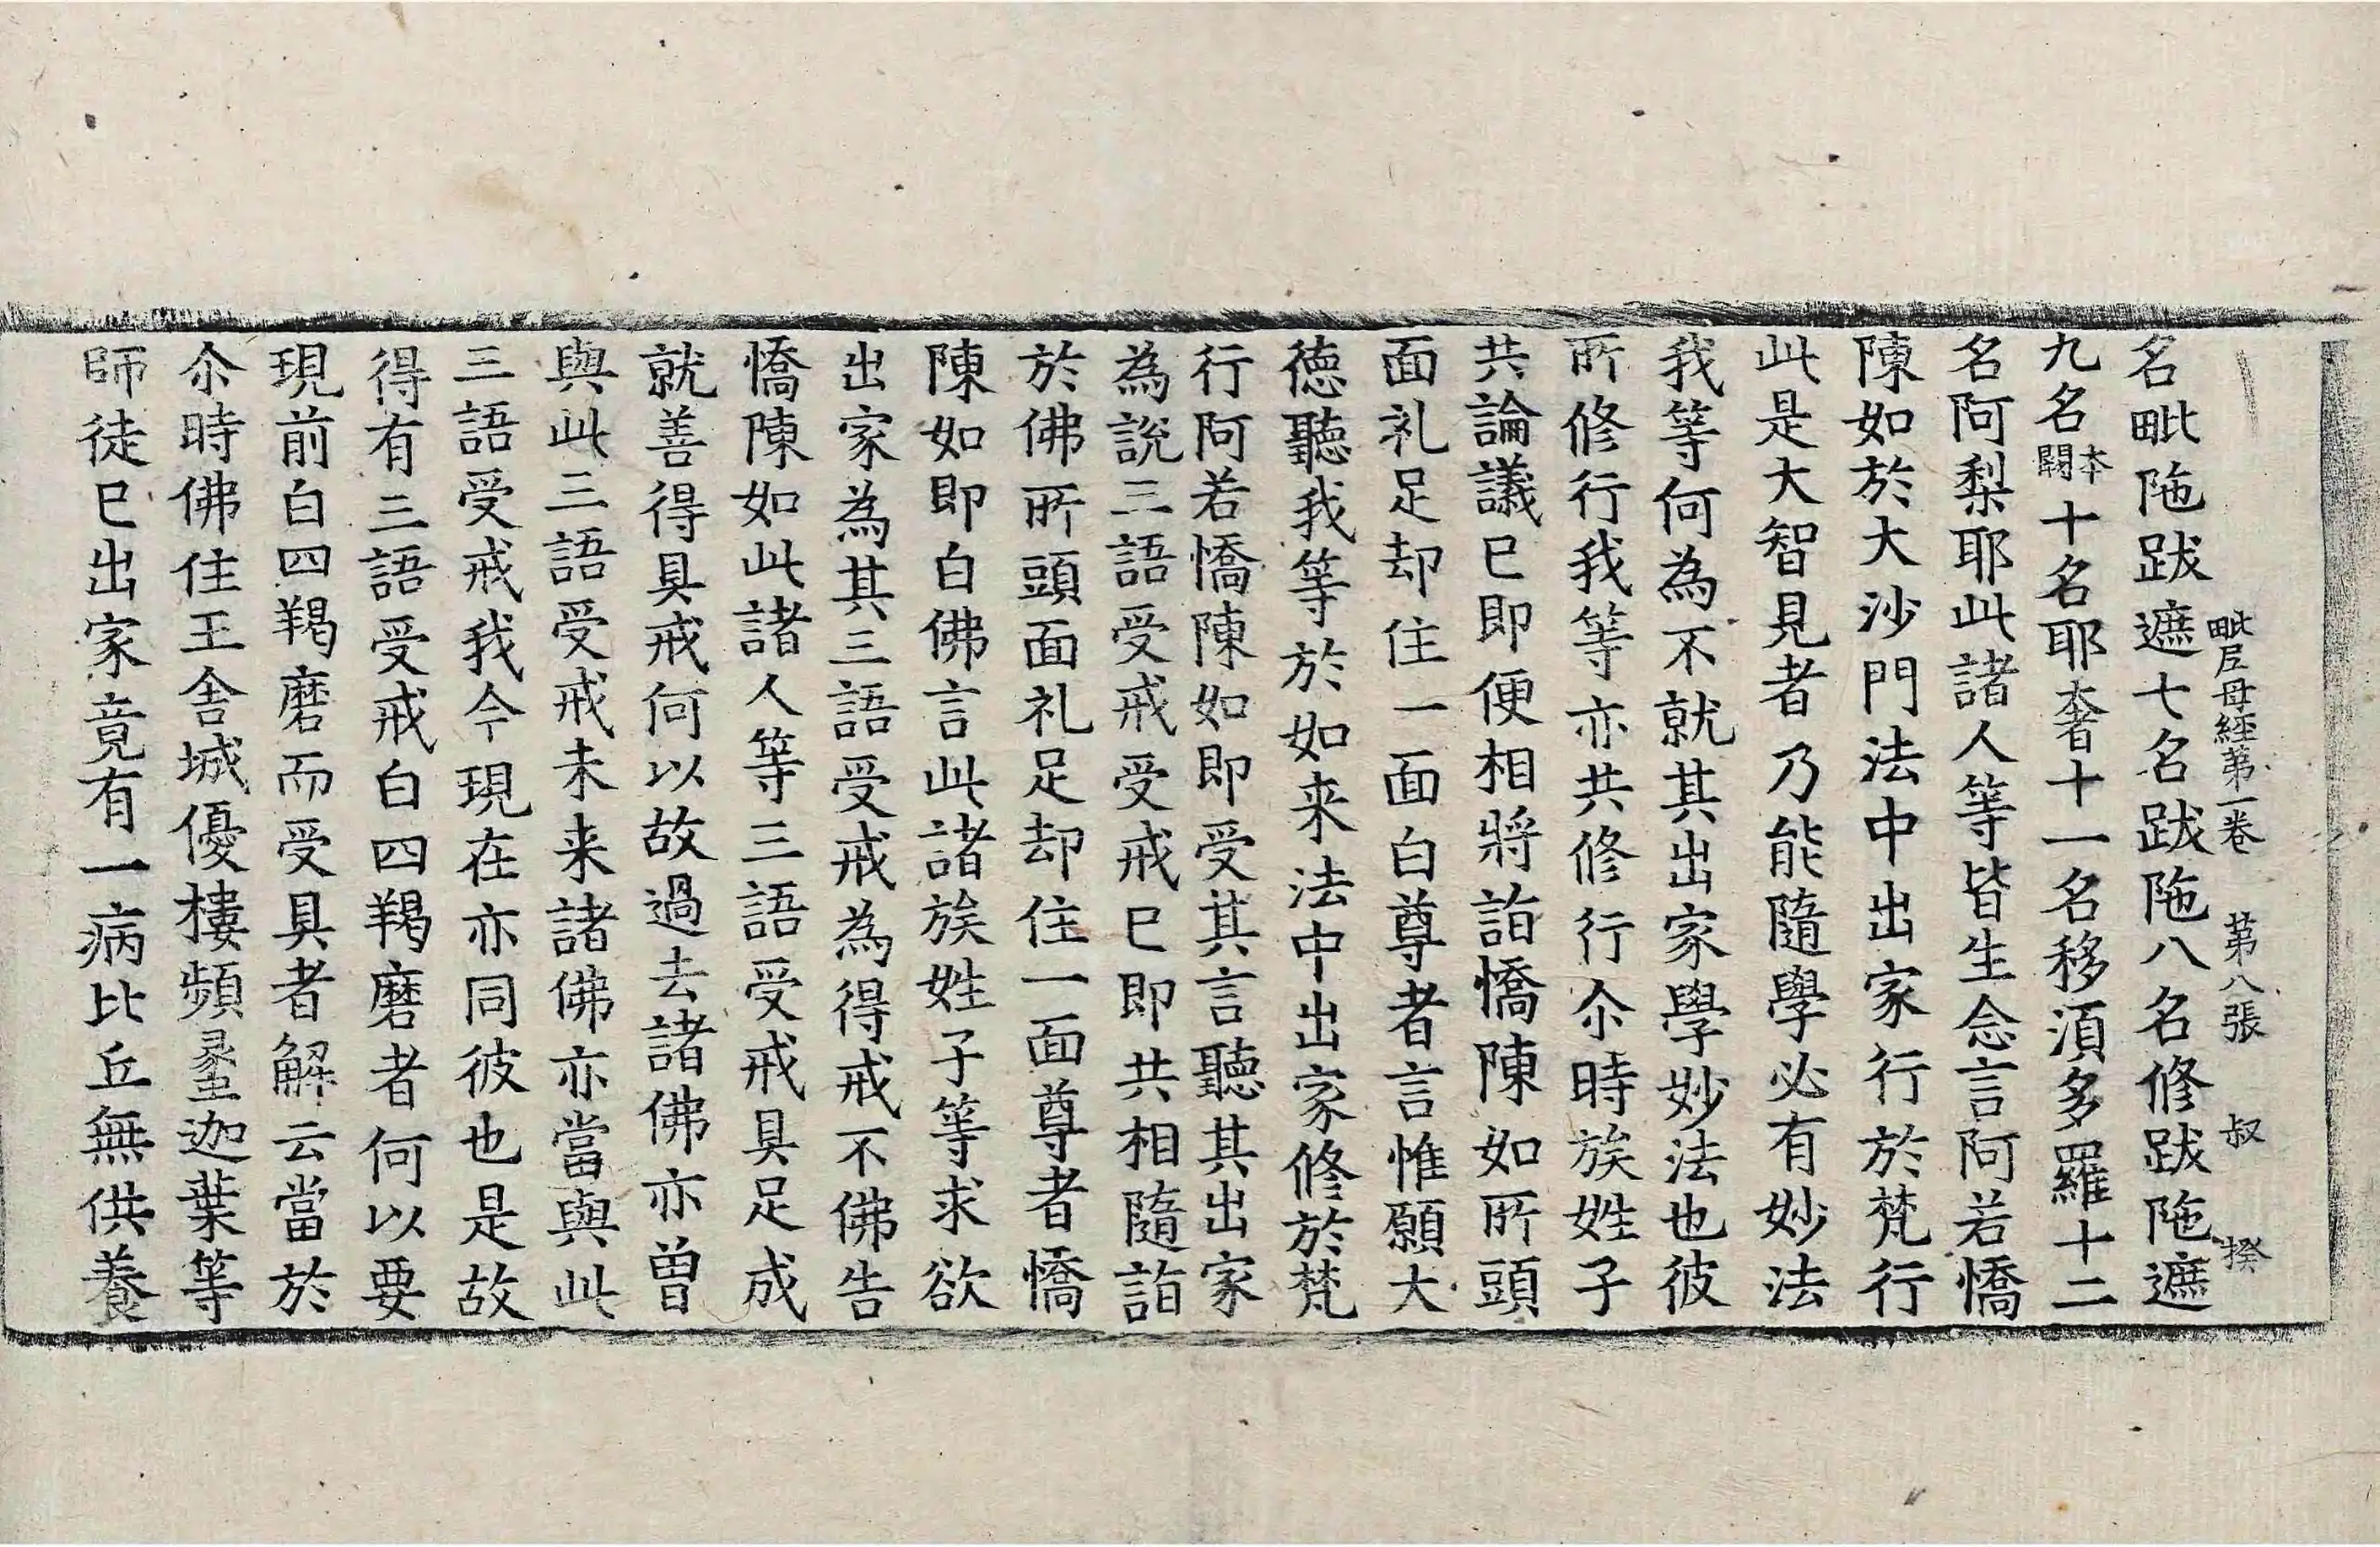 毗尼母經第一卷 第八張 叔 揆
名毗陁跋遮七名跋陁八名修跋陁遮
九名本闕十名耶奢十一名移湏多羅十二
名阿梨耶此諸人等皆生念言阿若憍
陳如於大沙門法中出家行於梵行
此是大智見者乃能隨學必有妙法
我等何為不就其出家學妙法也彼
所修行我等亦共修行尒時族姓子
共論議已即便相將詣憍陳如所頭
面礼足却住一面白尊者言惟願大
德聽我等於如来法中出家修於梵
行阿若憍陳如即受其言聽其出家
為說三語受戒受戒已即共相隨詣
於佛所頭面礼足却住一面尊者憍
陳如即白佛言此諸族姓子等求欲
出家為其三語受戒為得戒不佛告
憍陳如此諸人等三語受戒具足成
就善得具戒何以故過去諸佛亦曾
與此三語受戒未来諸佛亦當與此
三語受戒我今現在亦同彼也是故
得有三語受戒白四羯磨者何以要
現前白四羯磨而受具者解云當於
尒時佛住王舍城優樓頻螺迦葉等
師徒已出家竟有一病比丘無供養